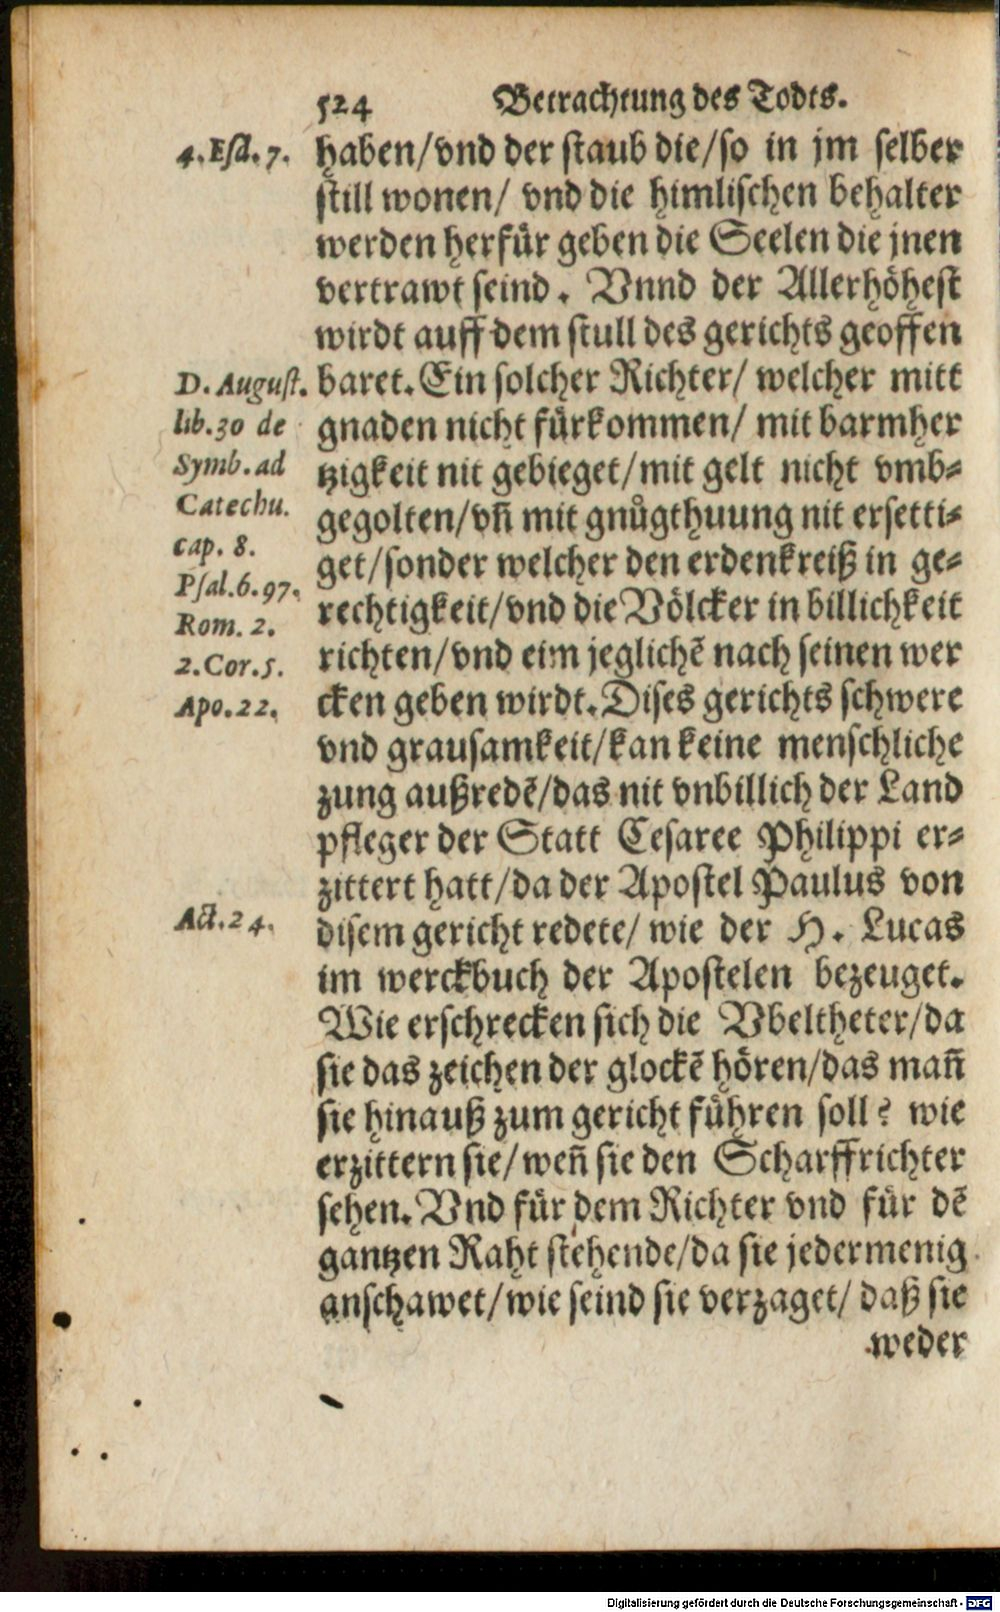 524 Betrachtung des Todts.
4.Esd.7. haben/vnd der staub die/so in jm selber
still wonen/ vnd die himlischen behalter
werden herfür geben die Seelen die jnen
vertrawt seind. Vnnd der Allerhöhest
wirdt auff dem stull des gerichts geoffen
D. August. baret. Ein solcher Richter/ welcher mitt
lib.30 de gnaden nicht fürkommen/ mit barmher
Symb. ad tzigkeit nit gebieget/mit gelt nicht vmb-
Catechu. gegolten/vn̄ mit gnůgthuung nit ersetti-
cap. 8. get/sonder welcher den erdenkreiß in ge-
Psal.6.97. rechtigkeit/vnd die Völcker in billichkeit
Rom. 2. richten/vnd eim jeglichē nach seinen wer
2.Cor.5. cken geben wirdt. Dises gerichts schwere
Apo.22. vnd grausamkeit/kan keine menschliche
zung außredē/das nit vnbillich der Land
pfleger der Statt Cesaree Philippi er-
zittert hatt/da der Apostel Paulus von
Act.24. disem gericht redete/ wie der H. Lucas
im werckbuch der Apostelen bezeuget.
Wie erschrecken sich die Vbeltheter/da
sie das zeichen der glockē hören/das man̄
sie hinauß zum gericht führen soll? wie
erzittern sie/wen̄ sie den Scharffrichter
sehen. Vnd für dem Richter vnd für dē
gantzen Raht stehende/da sie jedermenig
anschawet/wie seind sie verzaget/ daß sie
weder
Digitalisierung gefördert durch die Deutsche Forschungsgemeinschaft - DFG